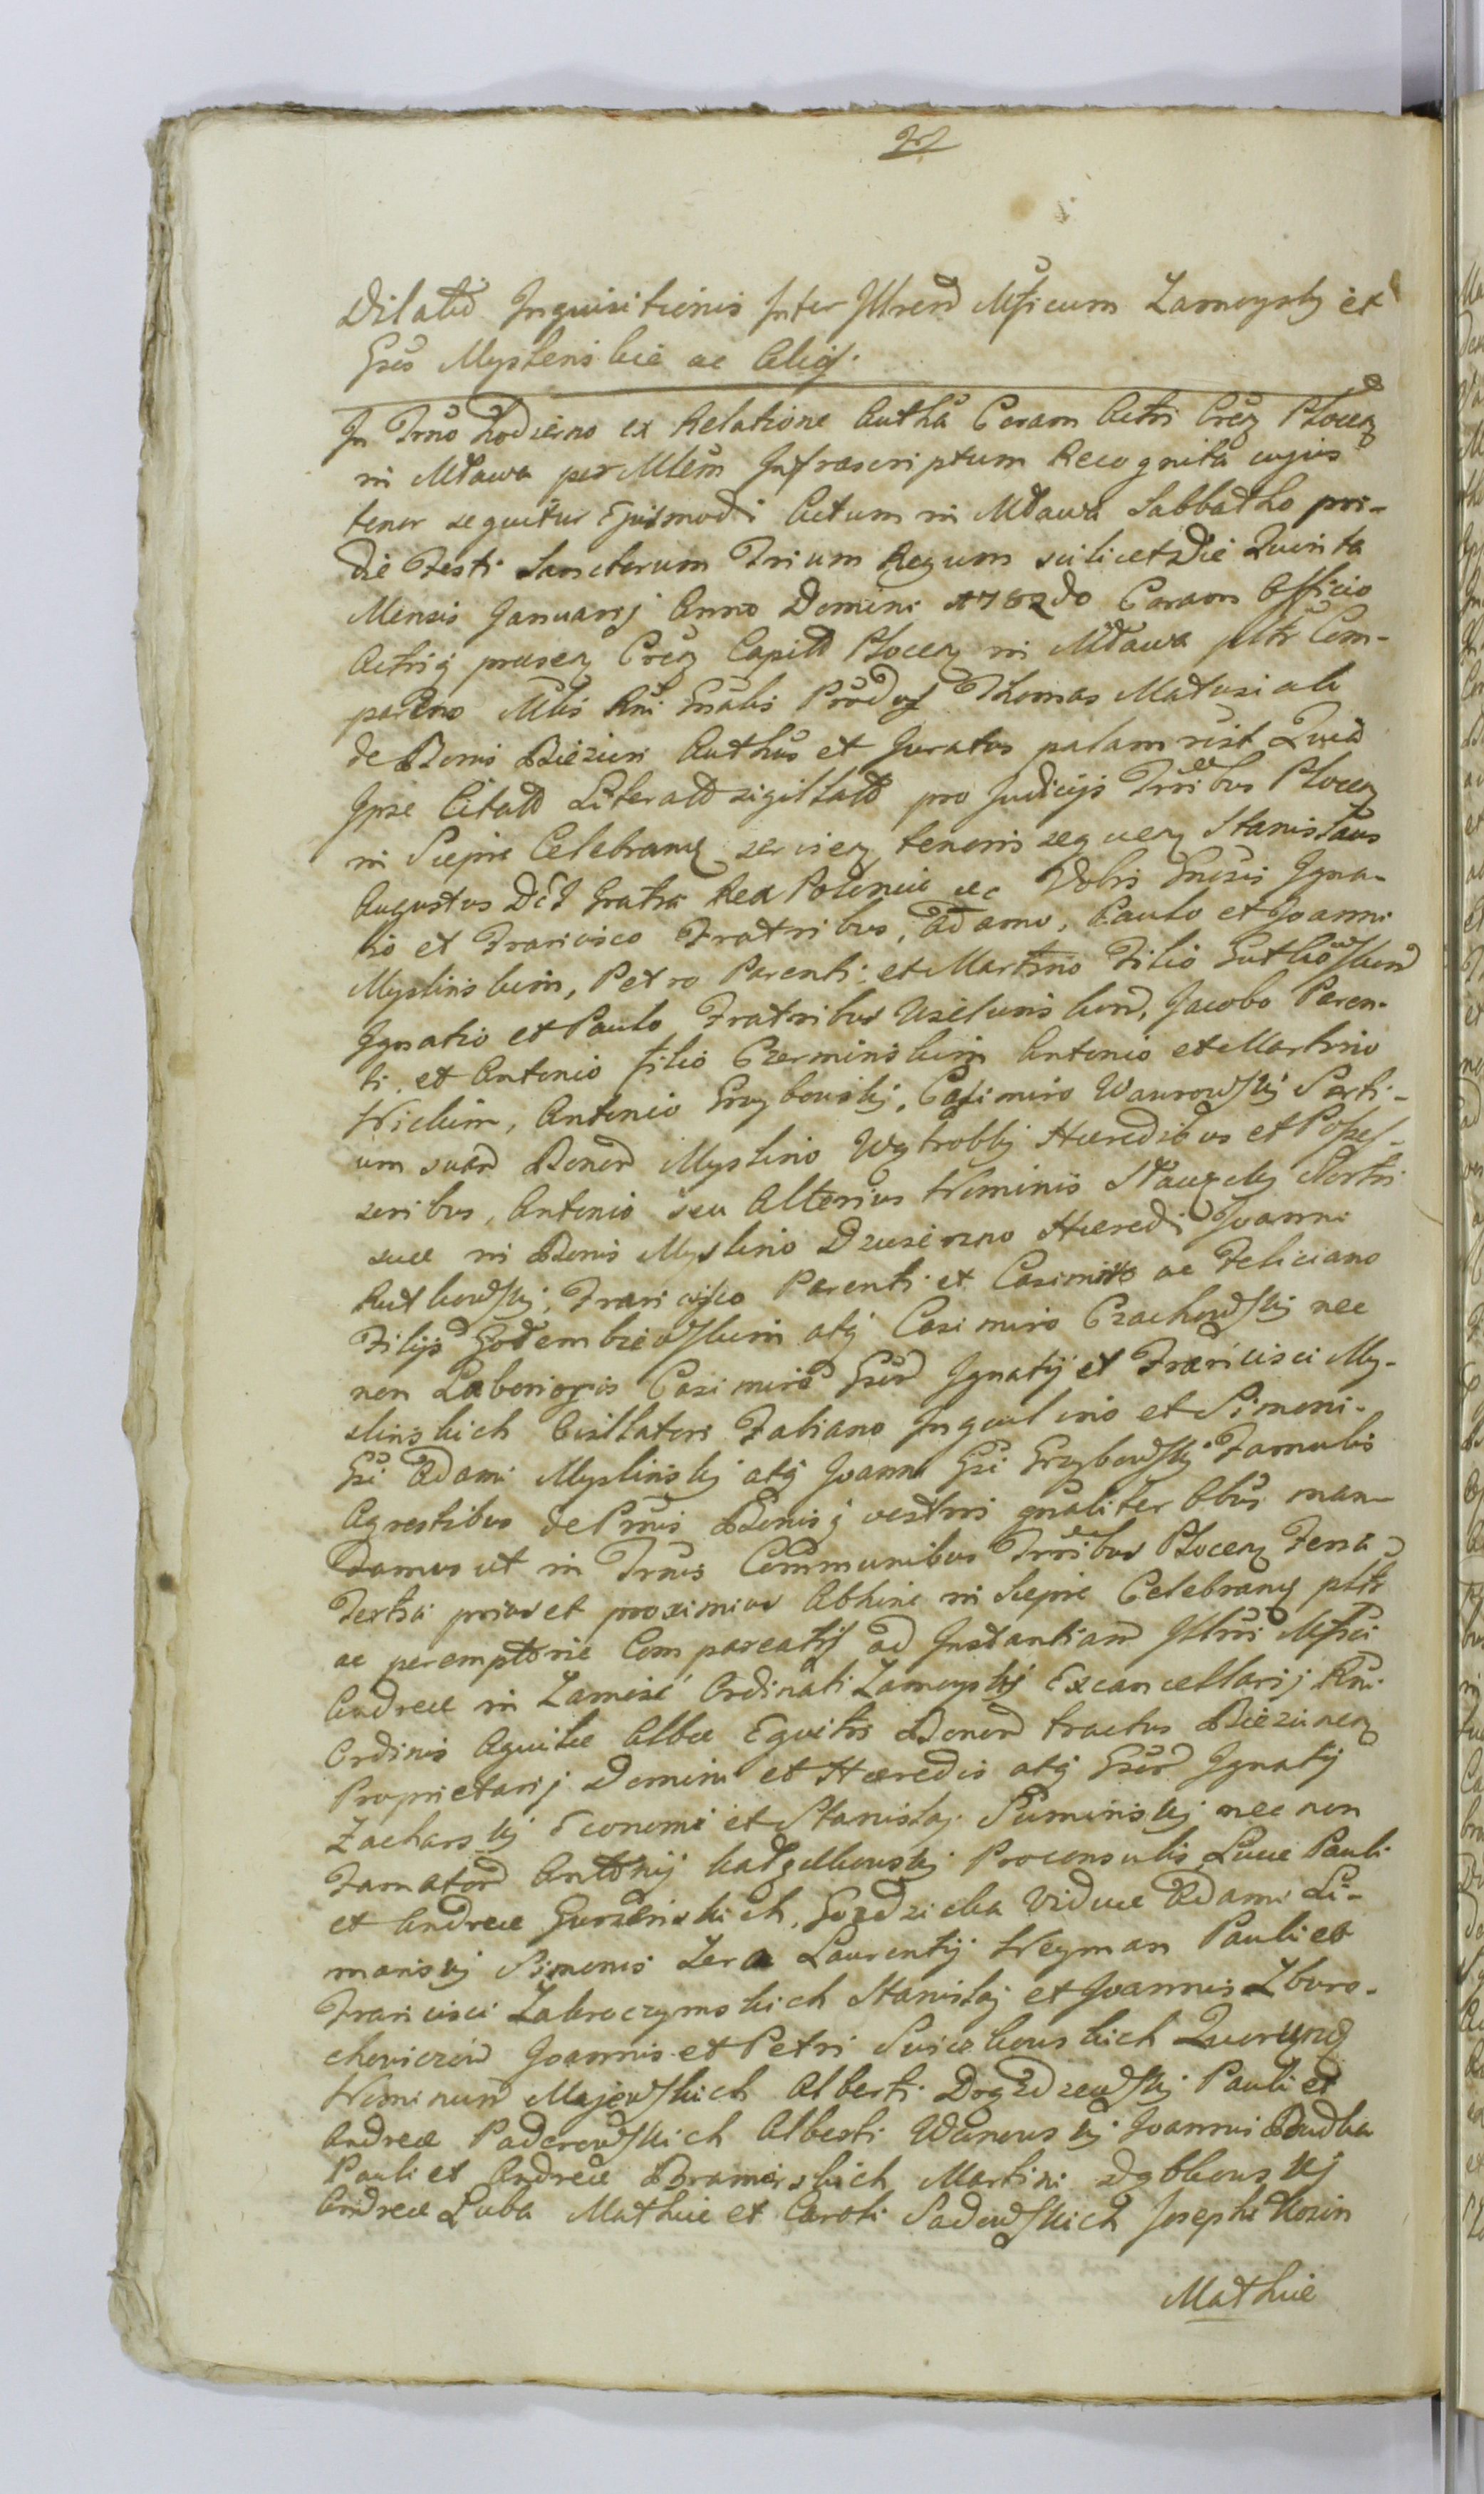 Dilatio Inquisitionis Inter Illrem Mficum Zamoyskj et
Gsos Myslenskie ac Alios.
In Trno hodierno ex Relatione Authca Coram Actis Crens Plocen
in Mława per Mlem Infrascriptum Recognita cujus
tenor sequitur Ejusmodi Actum in Mława Sabbatho pri-
die Festi Sanctorum Trium Regum scilicet Die Quinta
Mensis Januarij Anno Domini 1782do Coram Officio
Actisq presen Cren Capitl Plocen in Mława pltr Com-
parens Mlis Rni Gnalis Prood Thomas Matusiak
de Bonis Biezuń Authcus et Juratus palam Quia
Ipse Citatt Literatt sigillatt pro Judicijs Trribus Plocen
in Sieprc Celebrand servien tenoris sequen Stanislaus
Augustus DEI Gratia Rex Poloniæ etc Vobis Gnosis Igna-
tio et Francisco Fratribus, Adamo, Paulo et Joanni
Myslinskim, Petro Parenti et Martino Filio Gutkowskim
Ignatio et Paulo Fratribus, Jacobo Paren-
ti et Antonio filio Czerminskim Antonio et Martino
Wickim, Antonio Grzybowskj, Casimiro Wawrowskj Parti-
um suar Bonor Myslino Wątrobki Hæredibus et Posses-
soribus, Antonio seu Alterius Nominis Sortis
suæ in Bonis Myslino Dzusirzno Hæredi Joanni
Rutkowskj, Francisco Parenti et Casimiro ac Feliciano
Filijs Godembiewskim atq Casimiro Czachowskj nec
non Laboriosis Casimiro Gsor Ignatij et Francisci My-
slinskich Fabiano Inquilino et Simoni
Gsi Adami Myslinskj atq Joanni Gsi Grzybowskj Famulis
Agrestibus de Prnis Bonisq vestris gnaliter Obus man-
damus ut in Trnis Communibus Trribus Plocen Feria
Tertia prius et proximius Abhinc in Sieprc Celebrand pltr
ac peremptorie Compareatis ad Instantiam Illris Mfici
Andreæ in Zamość Ordinati Zamoyskj Excancellarij Rni
Ordinis Aquilæ Albæ Equitis Bonor tractus Biezunen
Proprietarij Domini et Hæredis atq Gsor Ignatij
Zacharskj Economi et Stanislaj Suminskj nec non
Famator Antonij Proconsulis Lucæ Pauli
et Andreæ Gurzenskich, Gozdzicka Viduæ Adami Li-
manskj Simonis Zera Laurentij Neyman Pauli et
Francisci Zakroczymskich Stanislaj et Joannis Zboro-
chowiczow Joannis et Petri Swiezkowskich Duorumq
Nominum Majewskich Alberti Drozdzewskj Pauli et
Andreæ Paderewskich Alberti Joannis Dudka
Pauli et Andreæ Bramirskich Martini Dąbkowskj
Andreæ Luba Mathiæ et Caroli Sadowskich Josephi Kozin
Mathiæ